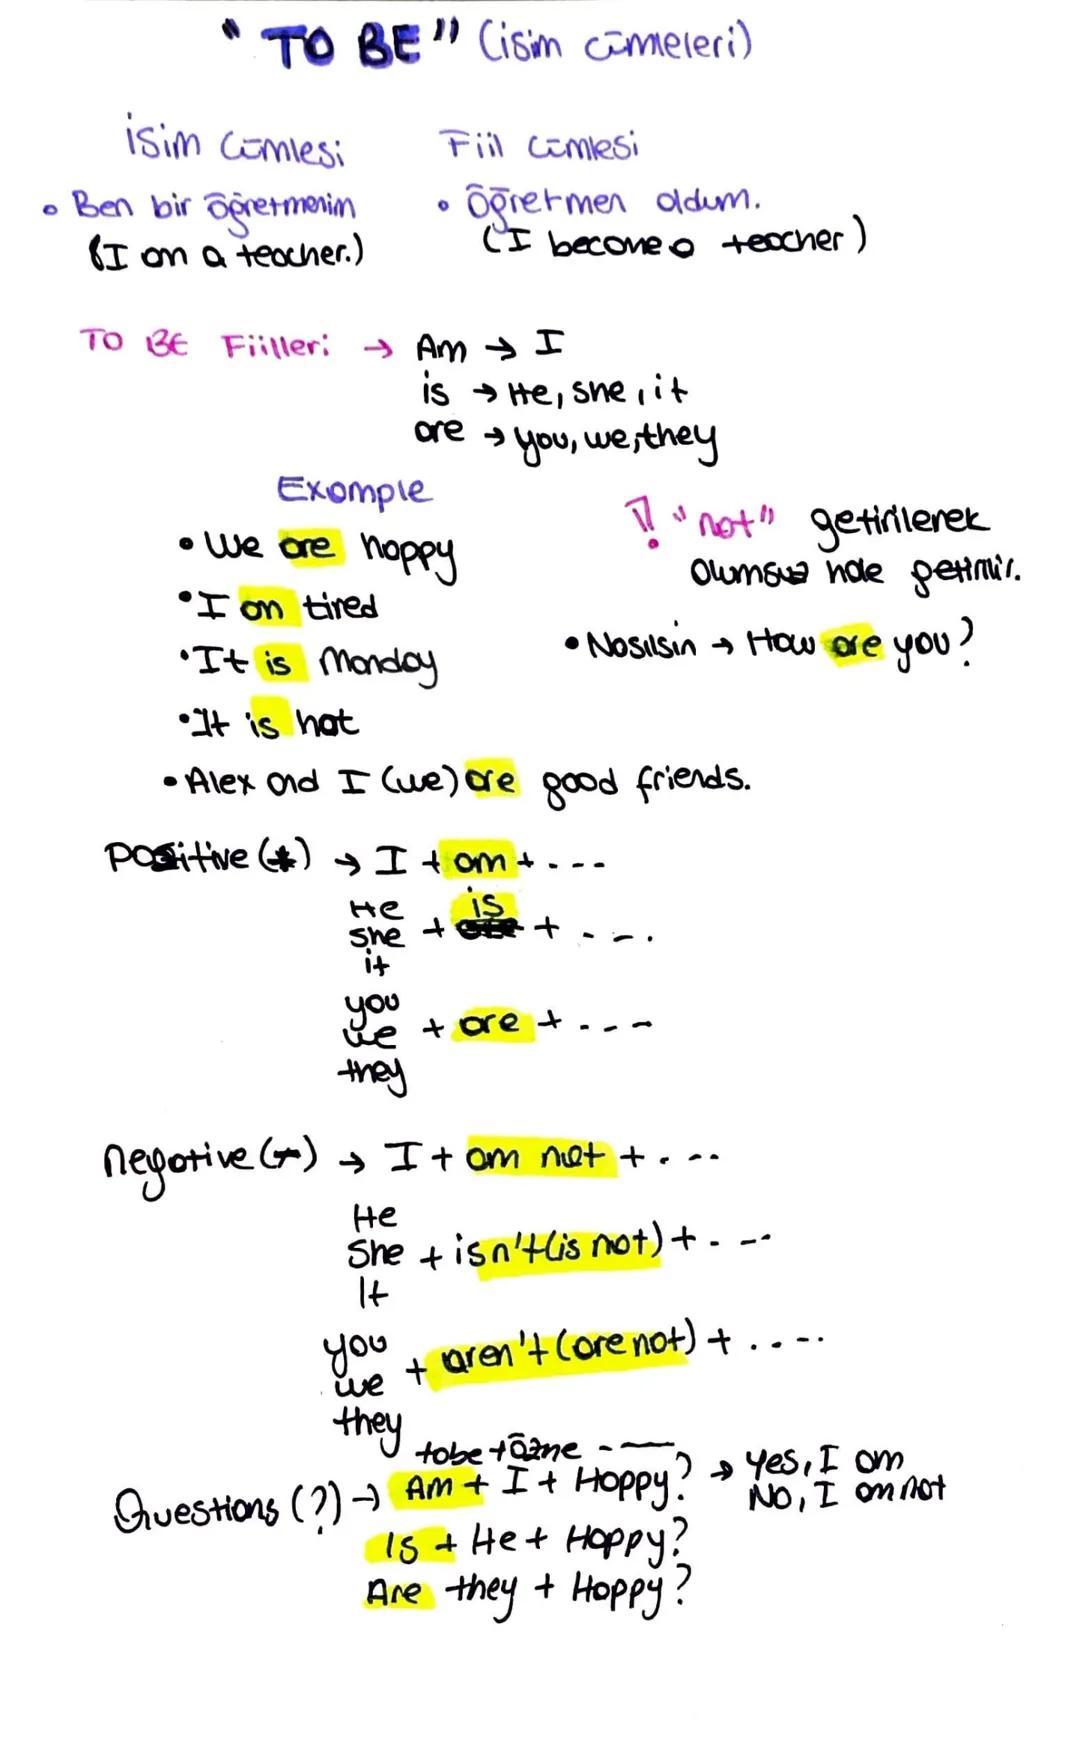 "TO BE" (isim cümleleri)
isim Cümlesi
Fiil cümlesi
• Ben bir öğretmenim
(I am a teacher.)
• Öğretmen oldum.
(I become a teacher)
TO BE Fiilleri → Am → I
is → He, she, it
are → you, we, they
Example
• We are happy
• I am tired
• It is Monday
• It is hot
• Alex and I (we) are good friends.
!! "not" getirilerek
olumsuz hale getirilir.
• Nasılsin → How are you?
positive (+) → I + am + ...
He
she + is + ...
it
you
we + are + ...
they
negative (-) → I + am not + ...
He
She + isn't (is not) + ...
It
you
we + aren't (are not) + ....
they
tobe + özne - —
Questions (?) → Am + I + Happy? → yes, I am
No, I am not
Is + He + Happy?
Are they + Happy?